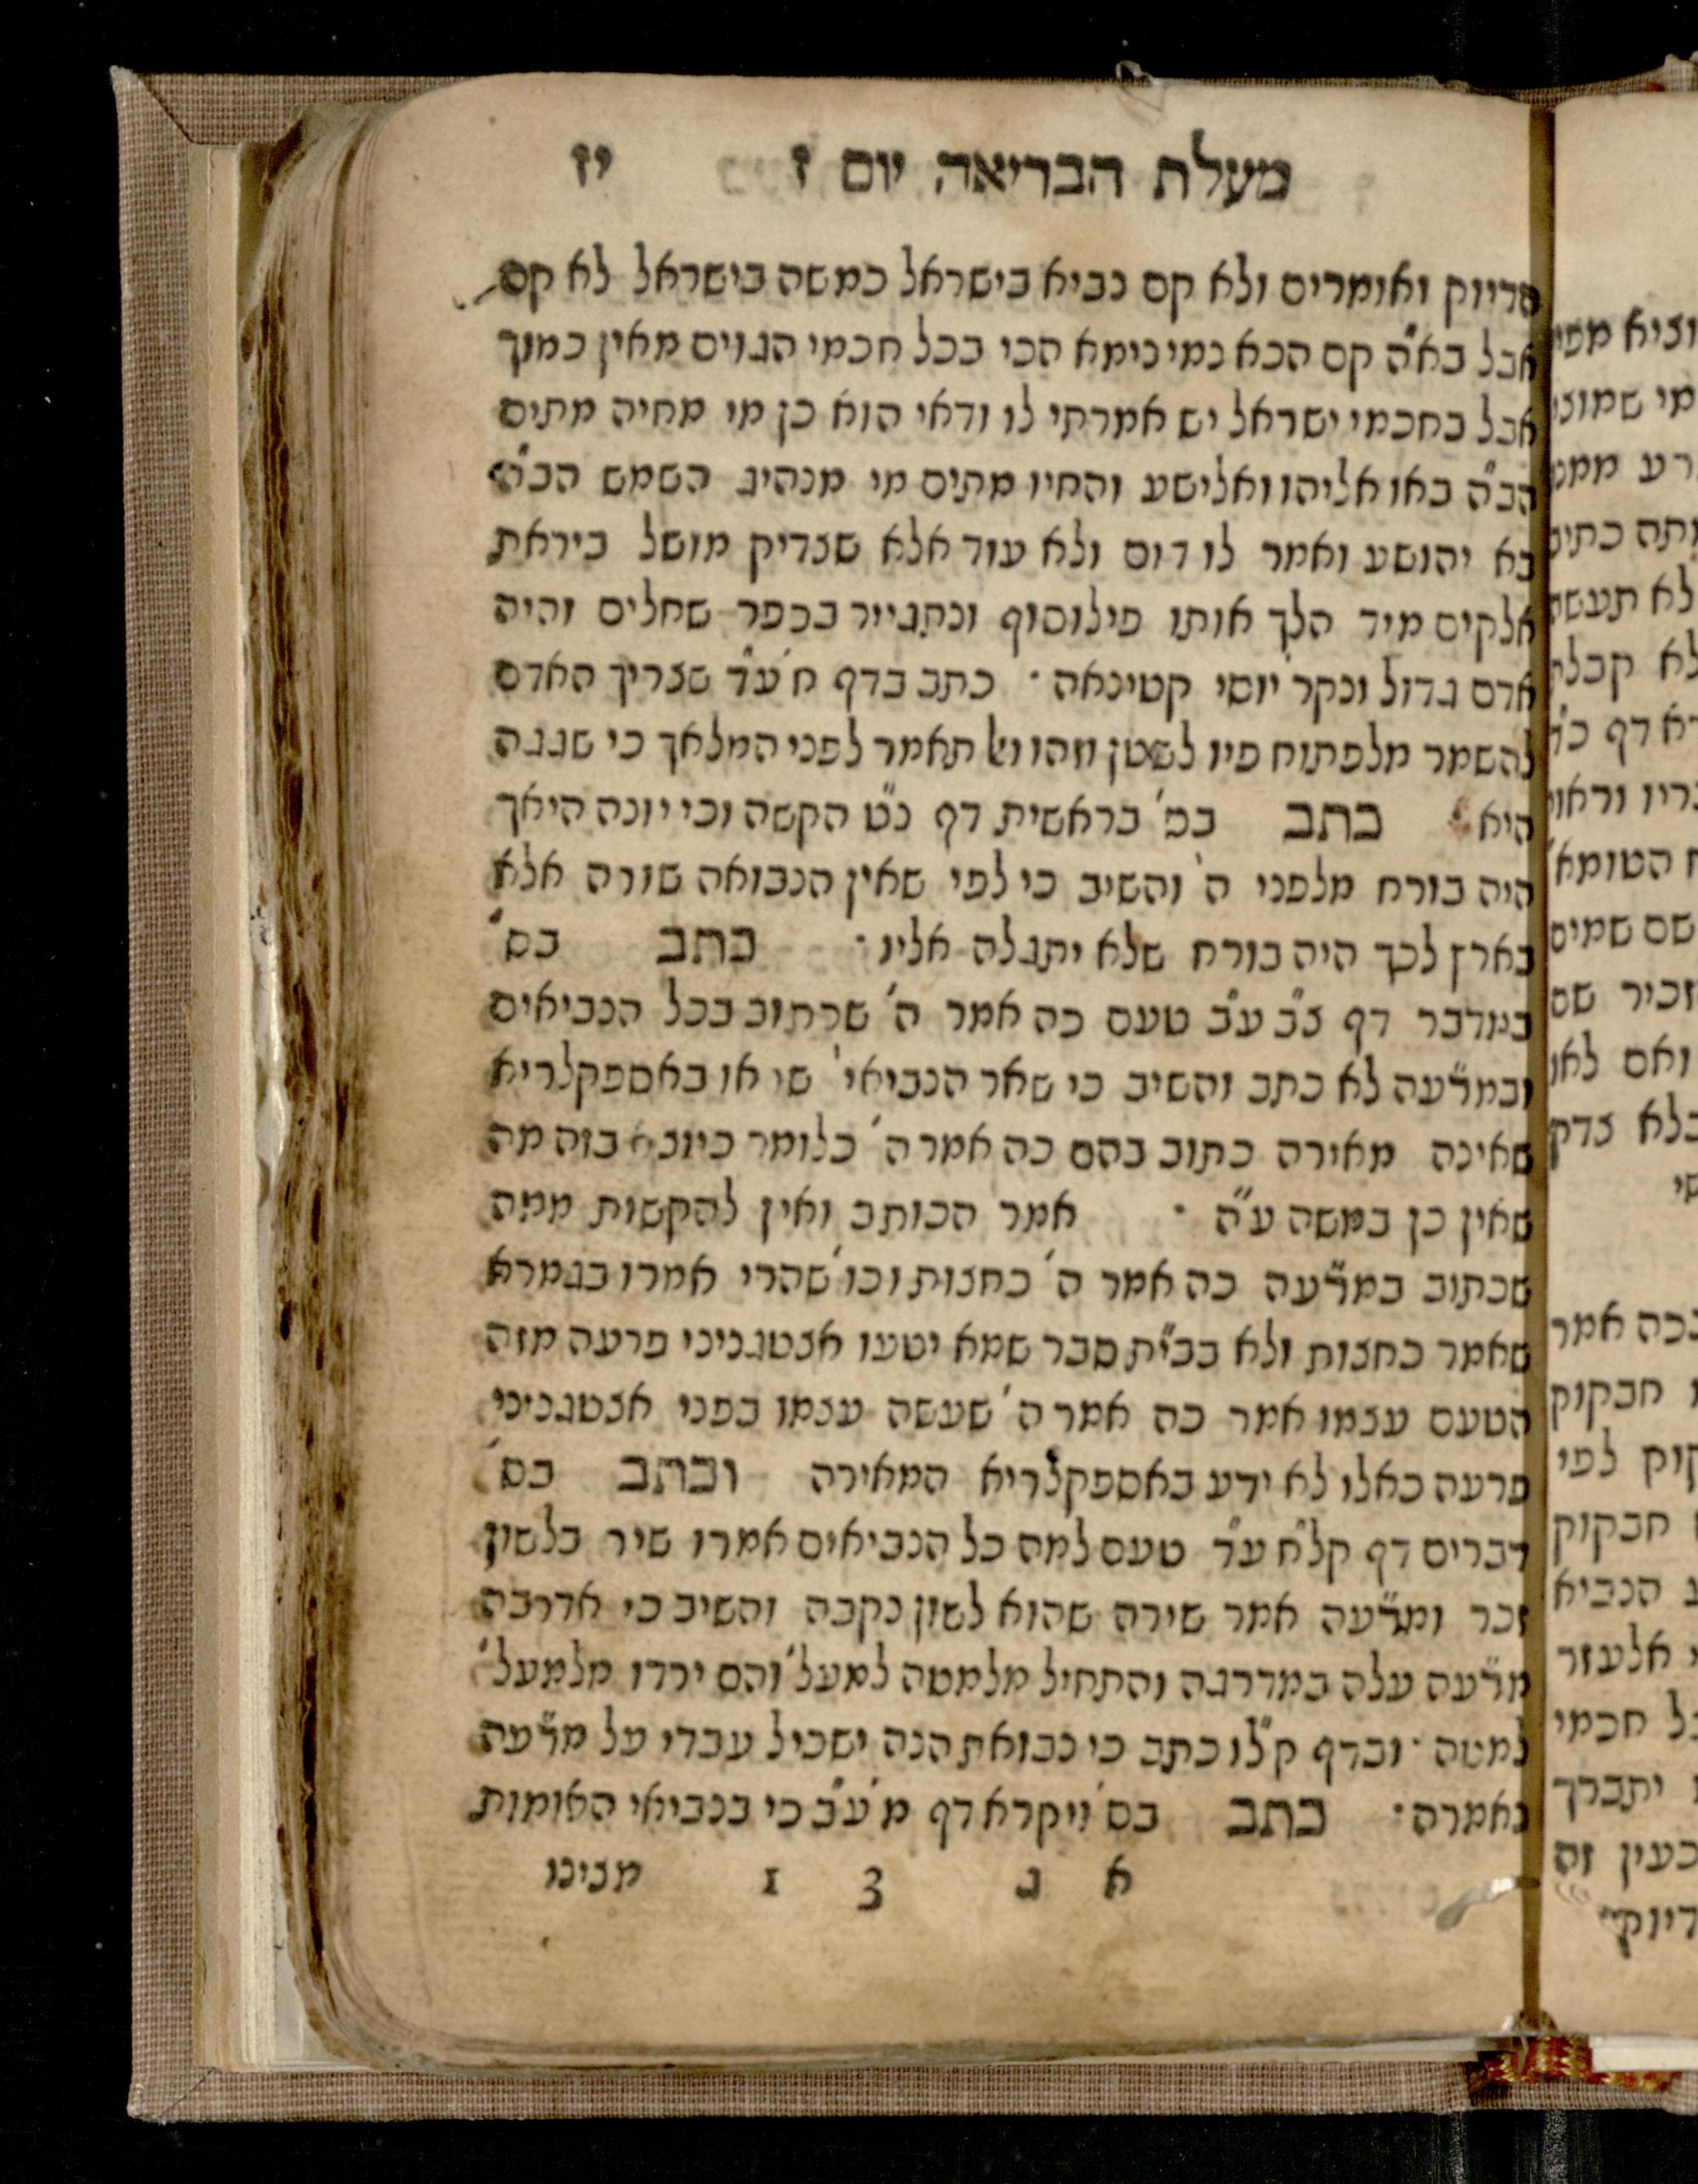 מעלת הבריאה יום ז יז
סדיוק ואומרים ולא קם נביא בישראל כמשה בישראל לא קם
אבל בא״ה קם הכא נמי נימא הכי בכל חכמי הגוים מאין כמוך
אבל בחכמי ישראל יש אמרתי לו ודאי הוא כן מי מחיה מתים
הב״ה באו אליהו ואלישע והחיו מתים מי מנהיג השמש הב״ה
בא יהושע ואמר לו דום ולא עוד אלא שצדיק מושל ביראת
אלקים מיד הלך אותו פילוסוף ונתגייר בכפר שחלים והיה
אדם גדול ונקר׳ יוסי קטינאה · כתב בדף ח׳ ע״ד שצריך האדם
להשמר מלפתוח פיו לשטן וזהו ואל תאמר לפני המלאך כי שגגה
היא · כתב בס׳ בראשית דף נ״ט הקשה וכי יונה היאך
היה בורח מלפני ה׳ והשיב כי לפי שאין הנבואה שורה אלא
בארץ לכך היה בורח שלא יתגלה אליו · כתב בס״
במדבר דף צ״ב ע״ב טעם כה אמר ה׳ שכתוב בכל הנביאים
ובמר״עה לא כתב והשיב כי שאר הנביאי׳ שראו באספקלריא
שאינה מאירה כתוב בהם כה אמר ה׳ כלומר כיוצא בזה מה
שאין כן במשה ע״ה · אמר הכותב ואין להקשות ממה
שכתוב במר״עה כה אמר ה׳ כחצות וכו׳ שהרי אמרו בגמרא
שאמר כחצות ולא בב״ת סבר שמא יטעו אצטגניני פרעה מזה
הטעם עצמו אמר כה אמר ה׳ שעשה עצמו בפני אצטגניני
פרעה כאלו לא ידע באספקלריא המאירה וכתב בס׳
דברים דף קל״ח ע״ד טעם למה כל הנביאים אמרו שיר בלשון
זכר ומר״עה אמר שירה שהוא לשון נקבה והשיב כי אדרבה
מר״עה עלה במדרגה והתחיל מלמטה למעל׳ והם ירדו מלמעל׳
למטה · ובדף ק״לו כתב כי נבואת הנה ישכיל עבדי על מר״עה
נאמרה · כתב בס׳ ויקרא דף מ׳ ע״ב כי בנביאי האומות
א ג 3 1 מצינו